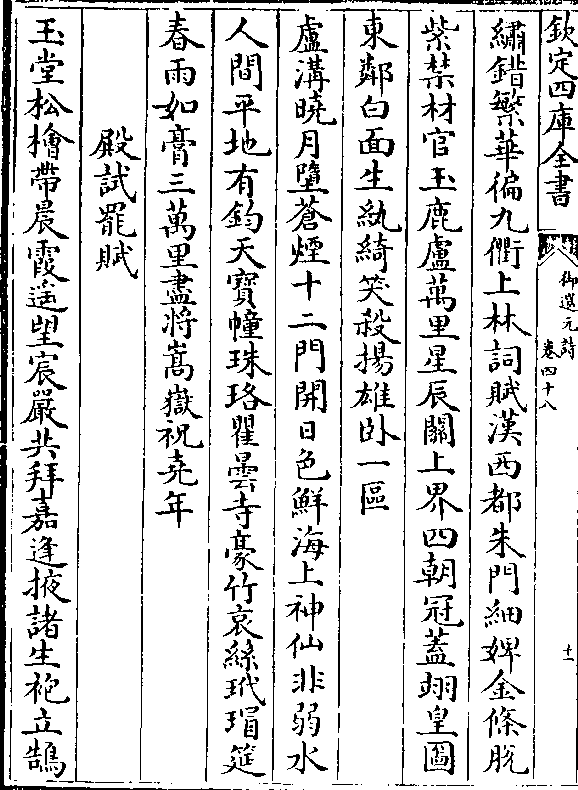 欽定四庫全書
御選元詩
卷四十八
十一
繡錯繁華徧九衢上林詞賦漢西都朱門細婢金條脫
紫禁材官玉鹿盧萬里星辰關上界四朝冠蓋翊皇圖
東鄰白面生紈綺笑殺揚雄卧一區
盧溝曉月墮蒼煙十二門開日色鮮海上神仙非弱水
人間平地有鈞天寶幢珠珞瞿曇寺豪竹哀絲玳瑁筵
春雨如膏三萬里盡將嵩嶽祝堯年
殿試罷賦
玉堂松檜帶晨霞遥望宸嚴共拜嘉逢掖諸生袍立鵠